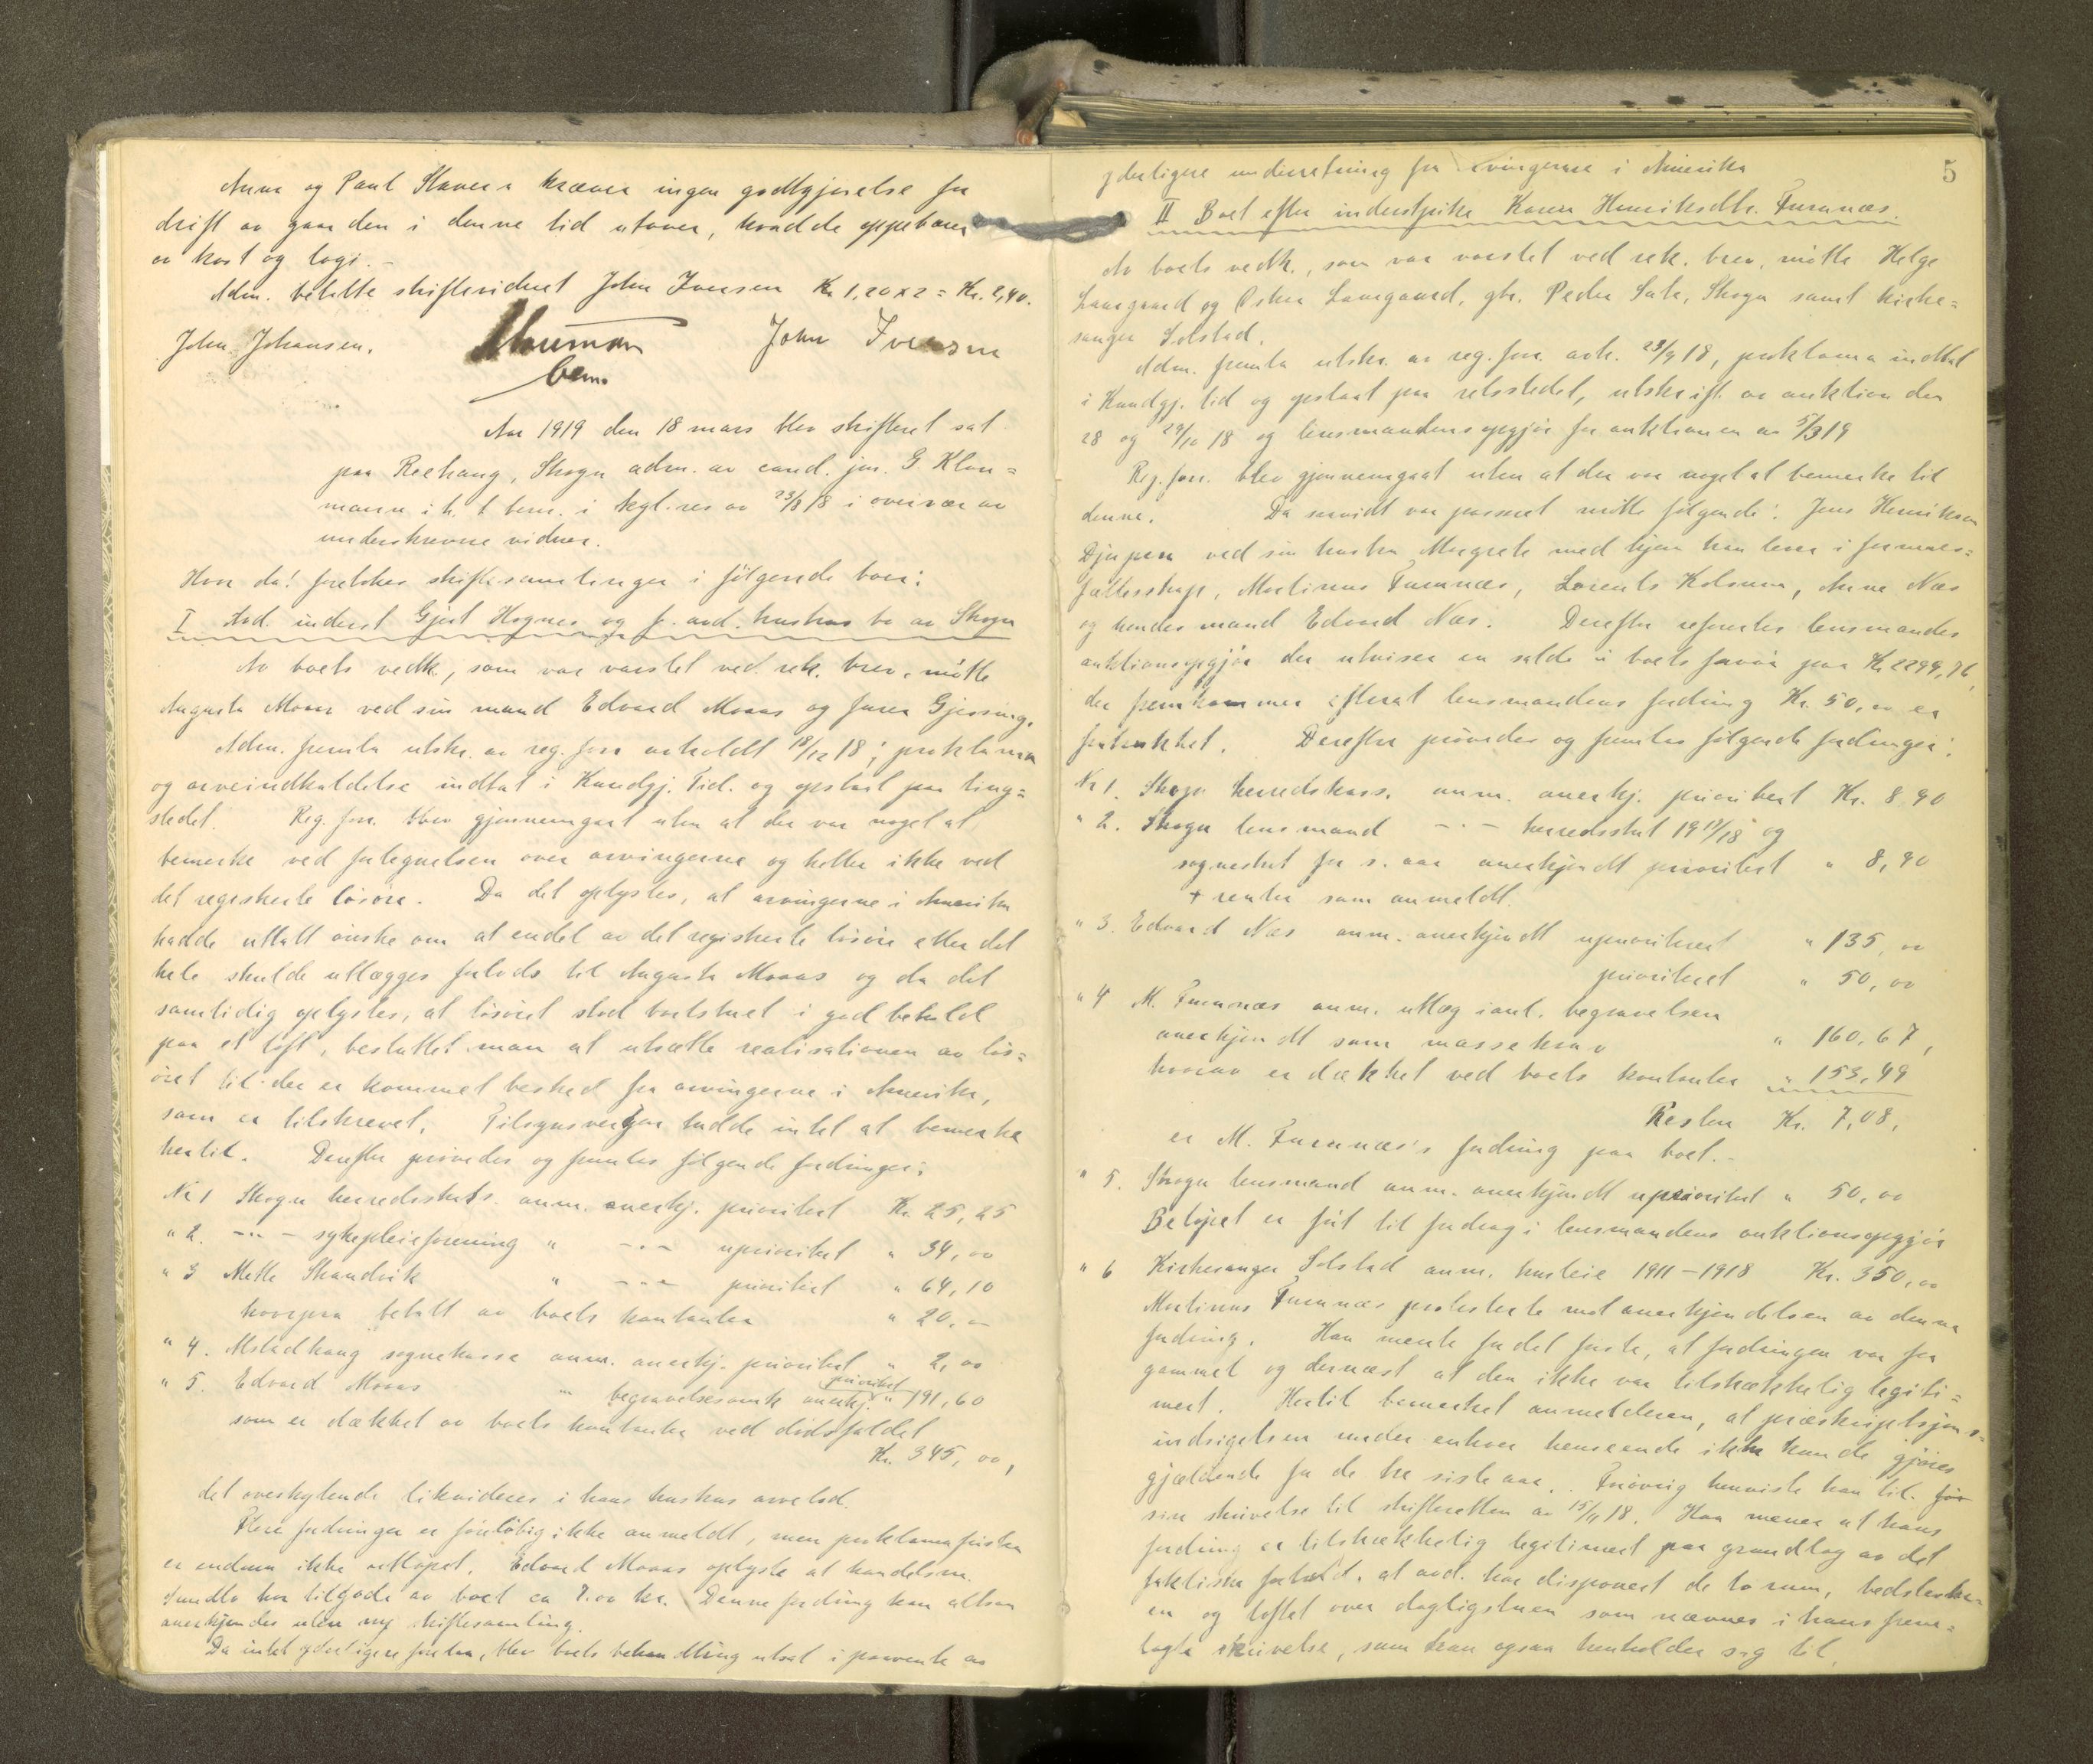 Anna og Paul Stavera kræver ingen godtgjørelse for
drift av gaarden i denne tid utover, hvad de oppebærer
av kost og logi. –
Adm. betalte skiftevidnet John Iversen Kr. 1,20 x 2 = Kr. 2,40.
John Johansen. Klouman John Iversen
bem.
Aar 1919 den 18 mars blev skifteret sat
paa Reehaug, Skogn adm. av cand. jur. G. Klou=
mann i h. t. bem. i kgl. res av 23/8 18 i overvær av
underskrevne vidner.
Hvor da! foretokes skiftesamlinger i følgende boer:
I Avd. inderst Gjert Hognes og f. avd. hustrus bo av Skogn
Av boets vedk., som var varslet ved rek. brev, møtte
Augusta Moaas ved sin mand Edvard Moaas og Gjessing.
Adm. fremla utskr. av reg. forr. avholdt 18/12 18; proklama
og arveindkaldelse indtat i Kundgj. Tid. og opslaat paa ting=
stedet. Reg. forr. blev gjennemgaat uten at der var noget at
bemerke ved fortegnelsen over arvingerne og heller ikke ved
det registrerte løsøre. Da det oplystes, at arvingerne i Amerika
hadde uttalt ønske om at endel av det registrerte løsøre eller det
hele skulde utlægges forlods til Augusta Moaas og da det
samtidig oplystes, at løsøret stod bortstuet i god behold
paa et loft, besluttet man at utsætte realisationen av løs=
øret til der er kommet besked fra arvingerne i Amerika,
som er tilskrevet. Tilsynsvergen hadde intet at bemerke
hertil. Derefter prøvedes og fremlas følgende fordringer:
Nr 1 Skogn herredsskats. anm. anerkj. prioritert Kr. 25,25
" 2. –"– sykepleieforening " –"– uprioritert " 34,00
" 3 Mette Skandvik " –"– prioritert " 64,10
hvorpaa betalt av boets kontanter " 20,00
" 4. Alstadhaug sognekasse anm. anerkj. prioritert " 2,00
" 5. Edvard Moaas " begravelsesomk anerkj. prioritert " 191,60
som er dækket av boets kontanter ved dødsfaldet
Kr. 345,00,
det overskytende likvideres i hans hustrus arvelod.
Flere fordringer er foreløbig ikke anmeldt, men proklamafristen
er endnu ikke utløpet. Edvard Moaas oplyste at handelsm.
har tilgode av boet ca 7.00 kr. Denne fordring kan altsaa
anerkjendes uten ny skiftesamling.
Da intet yderligere forelaa, blev boets behandling utsat i paavente av
5
yderligere underretning fra arvingerne i Amerika
II Boet efter inderstpike Karen Henriksdtr. Furunæs.
Av boets vedk., som var varslet ved rek. brev, møtte Helge
Lauvgaard og Østen Lauvgaard, gbr. Peder Sate, Skogn samt kirke=
sanger Solstad.
Adm. fremla utskr. av reg. forr. avh. 23/9 18, proklama indtat
i Kundgj. tid og opslaat paa retsstedet, utskrift av auktion den
28 og 29/10 18 og lensmandens opgjør for auktionen av 5/3 19
Reg. forr. blev gjennemgaat uten at der var noget at bemerke til
denne. Da saavidt var passeret møtte følgende: Jens Henriksen
Djupen ved sin hustru Margrete med hjem han lever i formues=
fællesskap, Martinus Furunæs, Lorents Kolsum, Anna Næs
og hendes mand Edvard Næs. Derefter refereres lensmandes
auktionsopgjør der utviser en saldo i boets favør paa Kr. 2299,76,
der fremkommer efterat lensmandens fordring Kr. 50,00 er
fratrukket. Derefter prøvedes og fremlas følgende fordringer:
Nr 1. Skogn herredskass. anm. anerkj. prioritert Kr. 8,90
" 2. Skogn lensmand –"– herredsskat 1917/18 og
sogneskat for s. aar anerkjendt prioritert " 8,90
+ renter som anmeldt.
" 3. Edvard Næs anm. anerkjendt uprioritert " 135,00
prioritert " 50,00
" 4 M. Furunæs anm. utlæg i anl. begravelsen
anerkjendt som massekrav " 160,67,
hvorav er dækket ved boets kontanter " 153,49
Resten Kr. 7,08,
er M. Furunæs's fordring paa boet. –
" 5. Skogn lensmand anm. anerkjendt uprioritert " 50,00
Beløpet er ført til fradrag i lensmandens auktionsopgjør
" 6 Kirkesanger Solstad anm. husleie 1911–1918 Kr. 350,00
Martinus Furunæs protesterte mot anerkjendelsen av denne
fordring. Han mente for det første, at fordringen var for
gammel og dernæst at den ikke var tilstrækkelig legiti=
mert. Hertil bemerket anmelderen, at præskriptsjons=
indsigelsen under enhver henseende ikke kunde gjøres
gjældende for de tre siste aar. Forøvrig henviste han til før
sin skrivelse til skifteretten av 15/11 18. Han mener at hans
fordring er tilstrækkelig legitimert paa grundlag av det
faktiske forhold, at avd. har disponert de to rum,
en og loftet over dagligstuen som nævnes i hans frem=
lagte skrivelse, som han ogsaa henholder sig til.